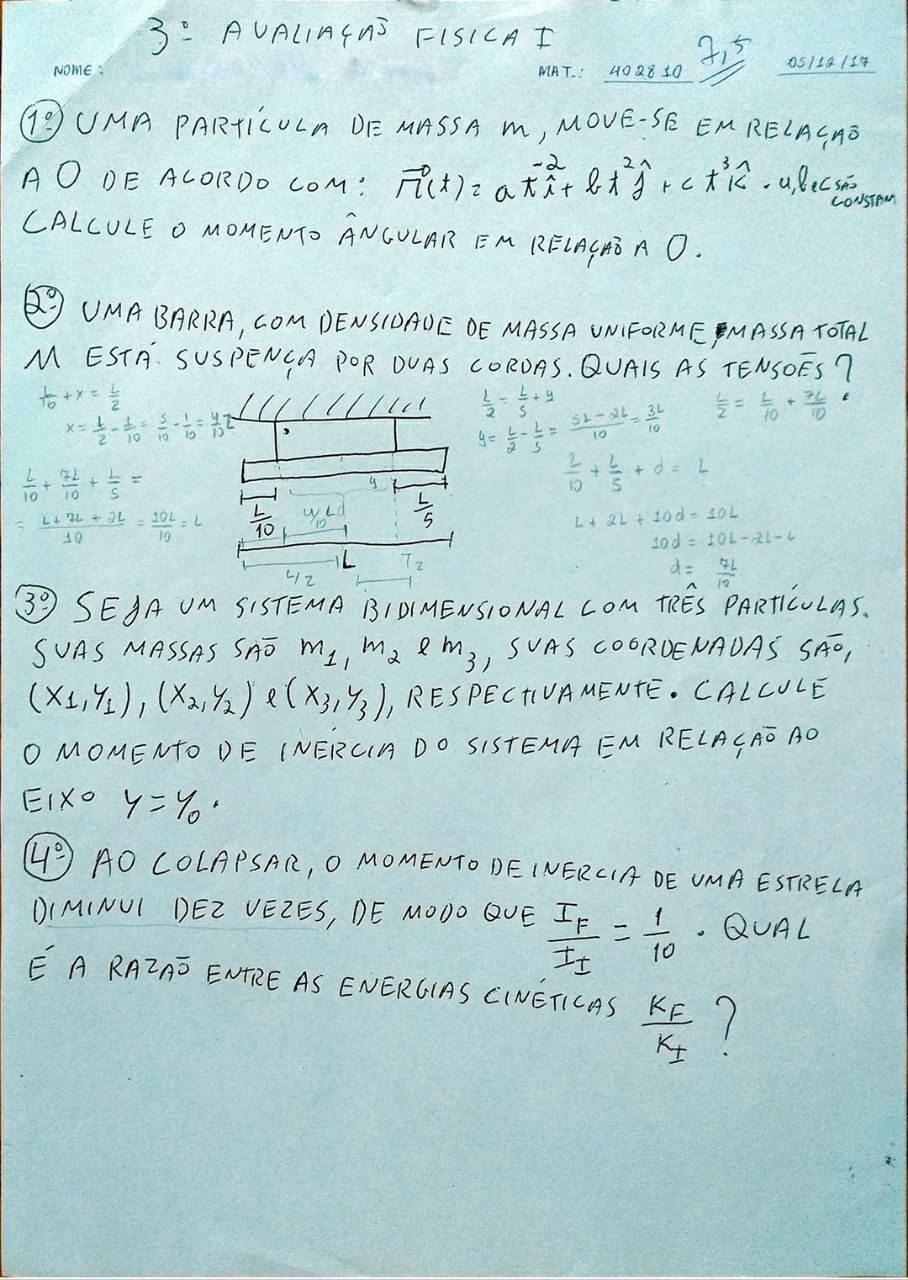 3º AVALIAÇÃO FISICA I
7,5
NOME: MAT.: 402810 05/12/17
1º UMA PARTÍCULA DE MASSA m, MOVE-SE EM RELAÇÃO
A O DE ACORDO COM: r⃗(t) = a t⁻² î + b t² ĵ + c t³ k̂ . a, b e c SÃO
CONSTAN
CALCULE O MOMENTO ÂNGULAR EM RELAÇÃO A O.
2º UMA BARRA, COM DENSIDADE DE MASSA UNIFORME, MASSA TOTAL
M ESTÁ SUSPENÇA POR DUAS CORDAS. QUAIS AS TENSOËS?
L/10 + x = L/2
x = L/2 - L/10 = 5/10 - 1/10 = 4/10 L
L/10 + 7L/10 + L/5 =
= L + 7L + 2L / 10 = 10L/10 = L
L/2 = L/5 + y
y = L/2 - L/5 = 5L - 2L / 10 = 3L/10
L/2 = L/10 + 7L/10
L/10 + L/5 + d = L
L + 2L + 10d = 10L
10d = 10L - 2L - L
d = 7L/10
y
L/10 L/5
L
L/2 T2
3º SEJA UM SISTEMA BIDIMENSIONAL COM TRÊS PARTÍCULAS.
SUAS MASSAS SÃO m1, m2 e m3, SUAS COORDENADAS SÃO,
(X1,Y1), (X2,Y2) e (X3,Y3), RESPECTIVAMENTE. CALCULE
O MOMENTO DE INÉRCIA DO SISTEMA EM RELAÇÃO AO
EIXO Y=Y0.
4º AO COLAPSAR, O MOMENTO DE INERCIA DE UMA ESTRELA
DIMINUI DEZ VEZES, DE MODO QUE I_F/I_I = 1/10 . QUAL
É A RAZAÕ ENTRE AS ENERGIAS CINÉTICAS K_F/K_I ?